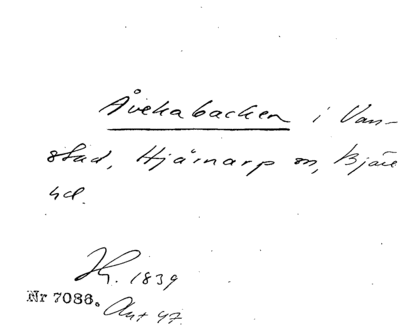 Åvekabacken i Van-
stad, Hjärnarp sn, Bjäre
hd.
H. 1839
Nr 7086. Akt 47